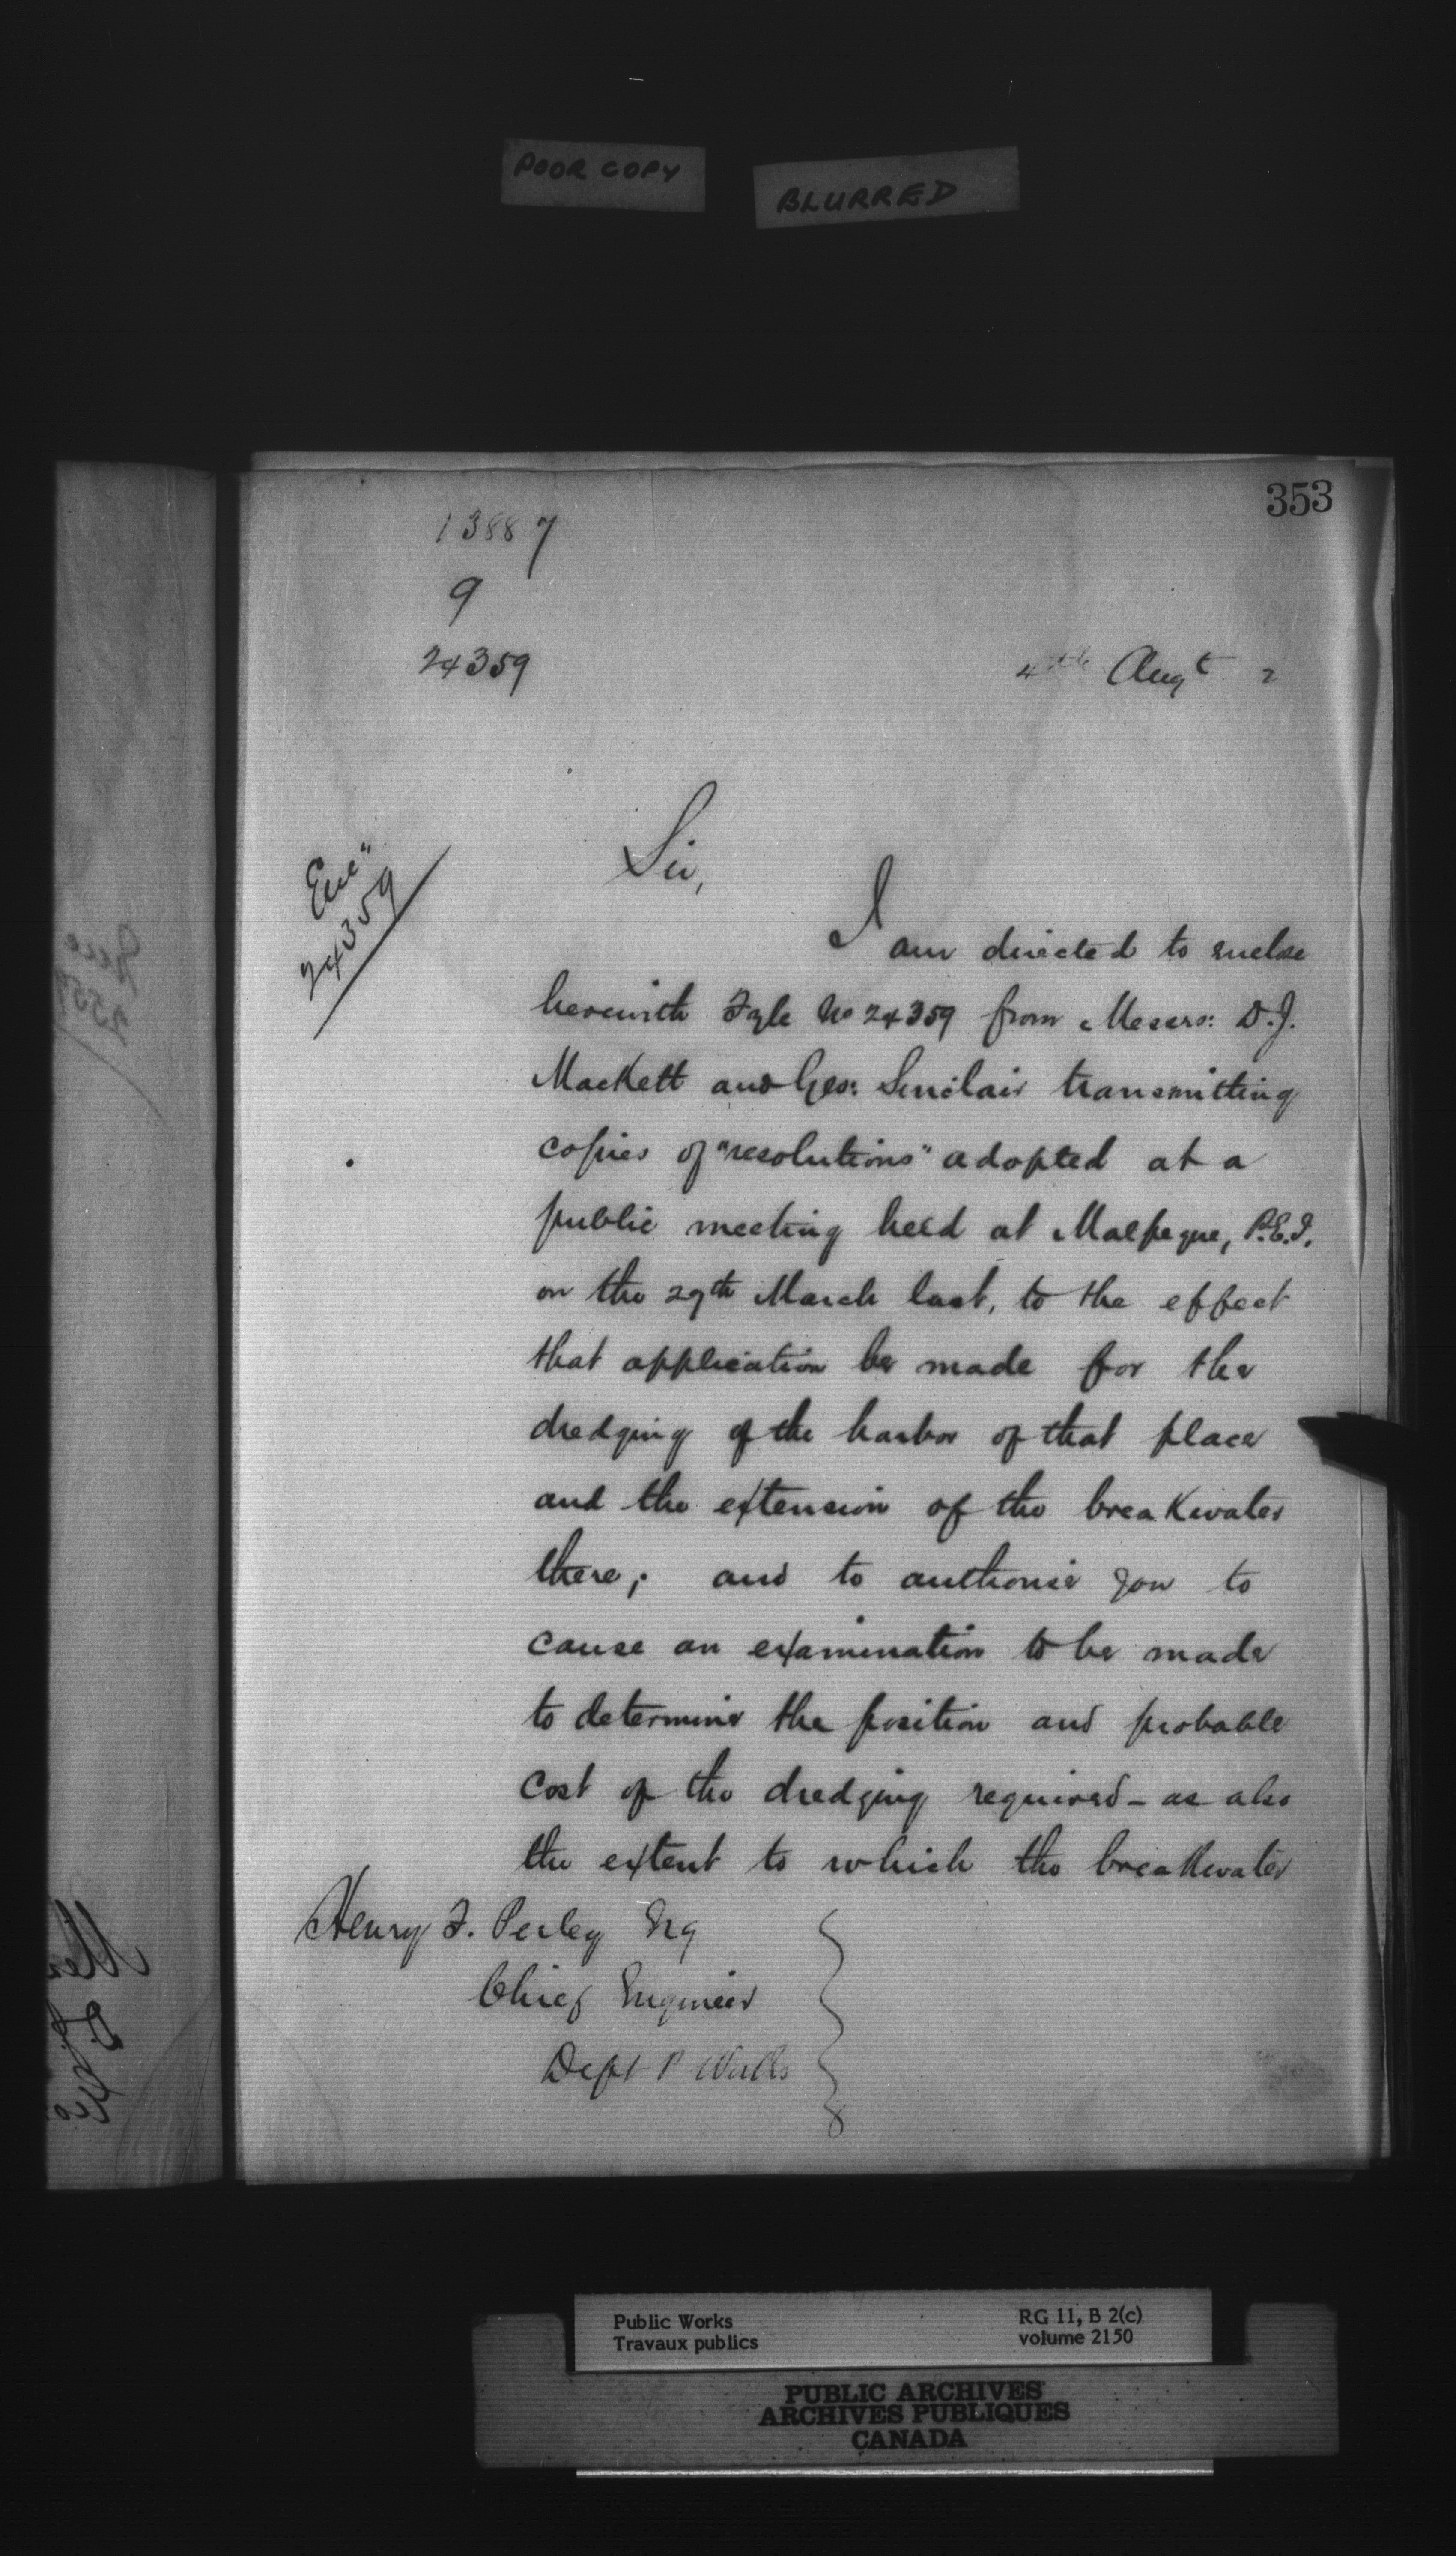 POOR COPY
BLURRED
353
13887
9
24359
4th Augt 2
Encl
24359
Sir,
I am directed to enclose
herewith Fyle No 24359 from Messrs: D.J.
MacKett and Geo: Sinclair transmitting
copies of "resolutions" adopted at a
public meeting held at Malpeque, P.E.I.
on the 29th March last, to the effect
that application be made for the
dredging of the harbor of that place
and the extension of the breakwater
there; and to authorise you to
cause an examination to be made
to determine the position and probable
cost of the dredging required - as also
the extent to which the breakwater
Henry F. Perley Esq
Chief Engineer
Dept P Works
Public Works
Travaux publics
RG 11, B 2(c)
volume 2150
PUBLIC ARCHIVES
ARCHIVES PUBLIQUES
CANADA